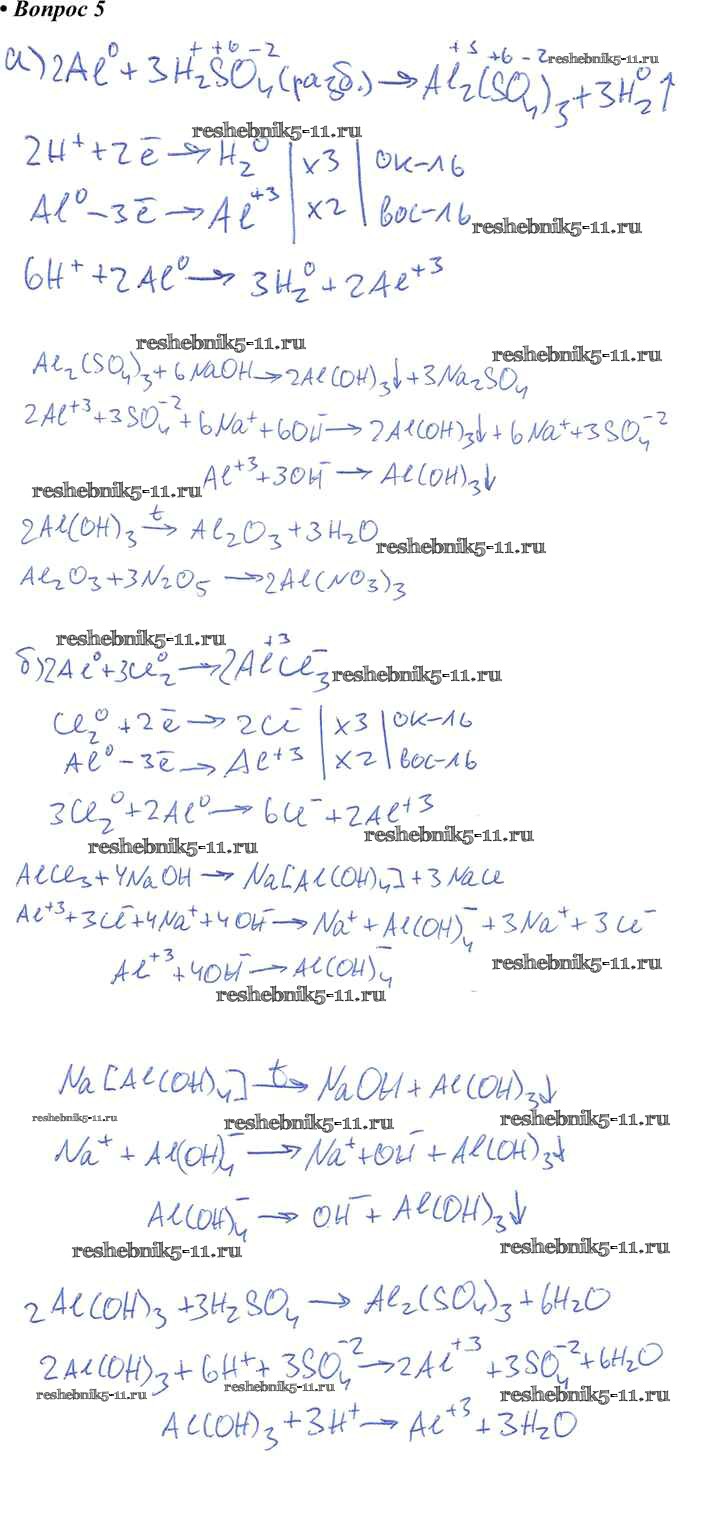 • Вопрос 5
а) 2Al⁰ + 3H₂⁺S⁺⁶O₄⁻² (разб.) → Al₂⁺³(S⁺⁶O₄⁻²)₃ + 3H₂⁰↑
reshebnik5-11.ru
reshebnik5-11.ru
2H⁺ + 2ē → H₂⁰ | x3 | ок-ль
Al⁰ - 3ē → Al⁺³ | x2 | вос-ль
reshebnik5-11.ru
6H⁺ + 2Al⁰ → 3H₂⁰ + 2Al⁺³
reshebnik5-11.ru
reshebnik5-11.ru
Al₂(SO₄)₃ + 6NaOH → 2Al(OH)₃↓ + 3Na₂SO₄
2Al⁺³ + 3SO₄⁻² + 6Na⁺ + 6OH⁻ → 2Al(OH)₃↓ + 6Na⁺ + 3SO₄⁻²
Al⁺³ + 3OH⁻ → Al(OH)₃↓
reshebnik5-11.ru
2Al(OH)₃ →ᵗ Al₂O₃ + 3H₂O
reshebnik5-11.ru
Al₂O₃ + 3N₂O₅ → 2Al(NO₃)₃
reshebnik5-11.ru
б) 2Al⁰ + 3Cl₂⁰ → 2Al⁺³Cl₃⁻
reshebnik5-11.ru
Cl₂⁰ + 2ē → 2Cl⁻ | x3 | ок-ль
Al⁰ - 3ē → Al⁺³ | x2 | вос-ль
3Cl₂⁰ + 2Al⁰ → 6Cl⁻ + 2Al⁺³
reshebnik5-11.ru
reshebnik5-11.ru
AlCl₃ + 4NaOH → Na[Al(OH)₄] + 3NaCl
Al⁺³ + 3Cl⁻ + 4Na⁺ + 4OH⁻ → Na⁺ + Al(OH)₄⁻ + 3Na⁺ + 3Cl⁻
Al⁺³ + 4OH⁻ → Al(OH)₄⁻
reshebnik5-11.ru
reshebnik5-11.ru
Na[Al(OH)₄] →ᵗ NaOH + Al(OH)₃↓
reshebnik5-11.ru
reshebnik5-11.ru
reshebnik5-11.ru
Na⁺ + Al(OH)₄⁻ → Na⁺ + OH⁻ + Al(OH)₃↓
Al(OH)₄⁻ → OH⁻ + Al(OH)₃↓
reshebnik5-11.ru
reshebnik5-11.ru
2Al(OH)₃ + 3H₂SO₄ → Al₂(SO₄)₃ + 6H₂O
2Al(OH)₃ + 6H⁺ + 3SO₄⁻² → 2Al⁺³ + 3SO₄⁻² + 6H₂O
reshebnik5-11.ru
reshebnik5-11.ru
reshebnik5-11.ru
Al(OH)₃ + 3H⁺ → Al⁺³ + 3H₂O